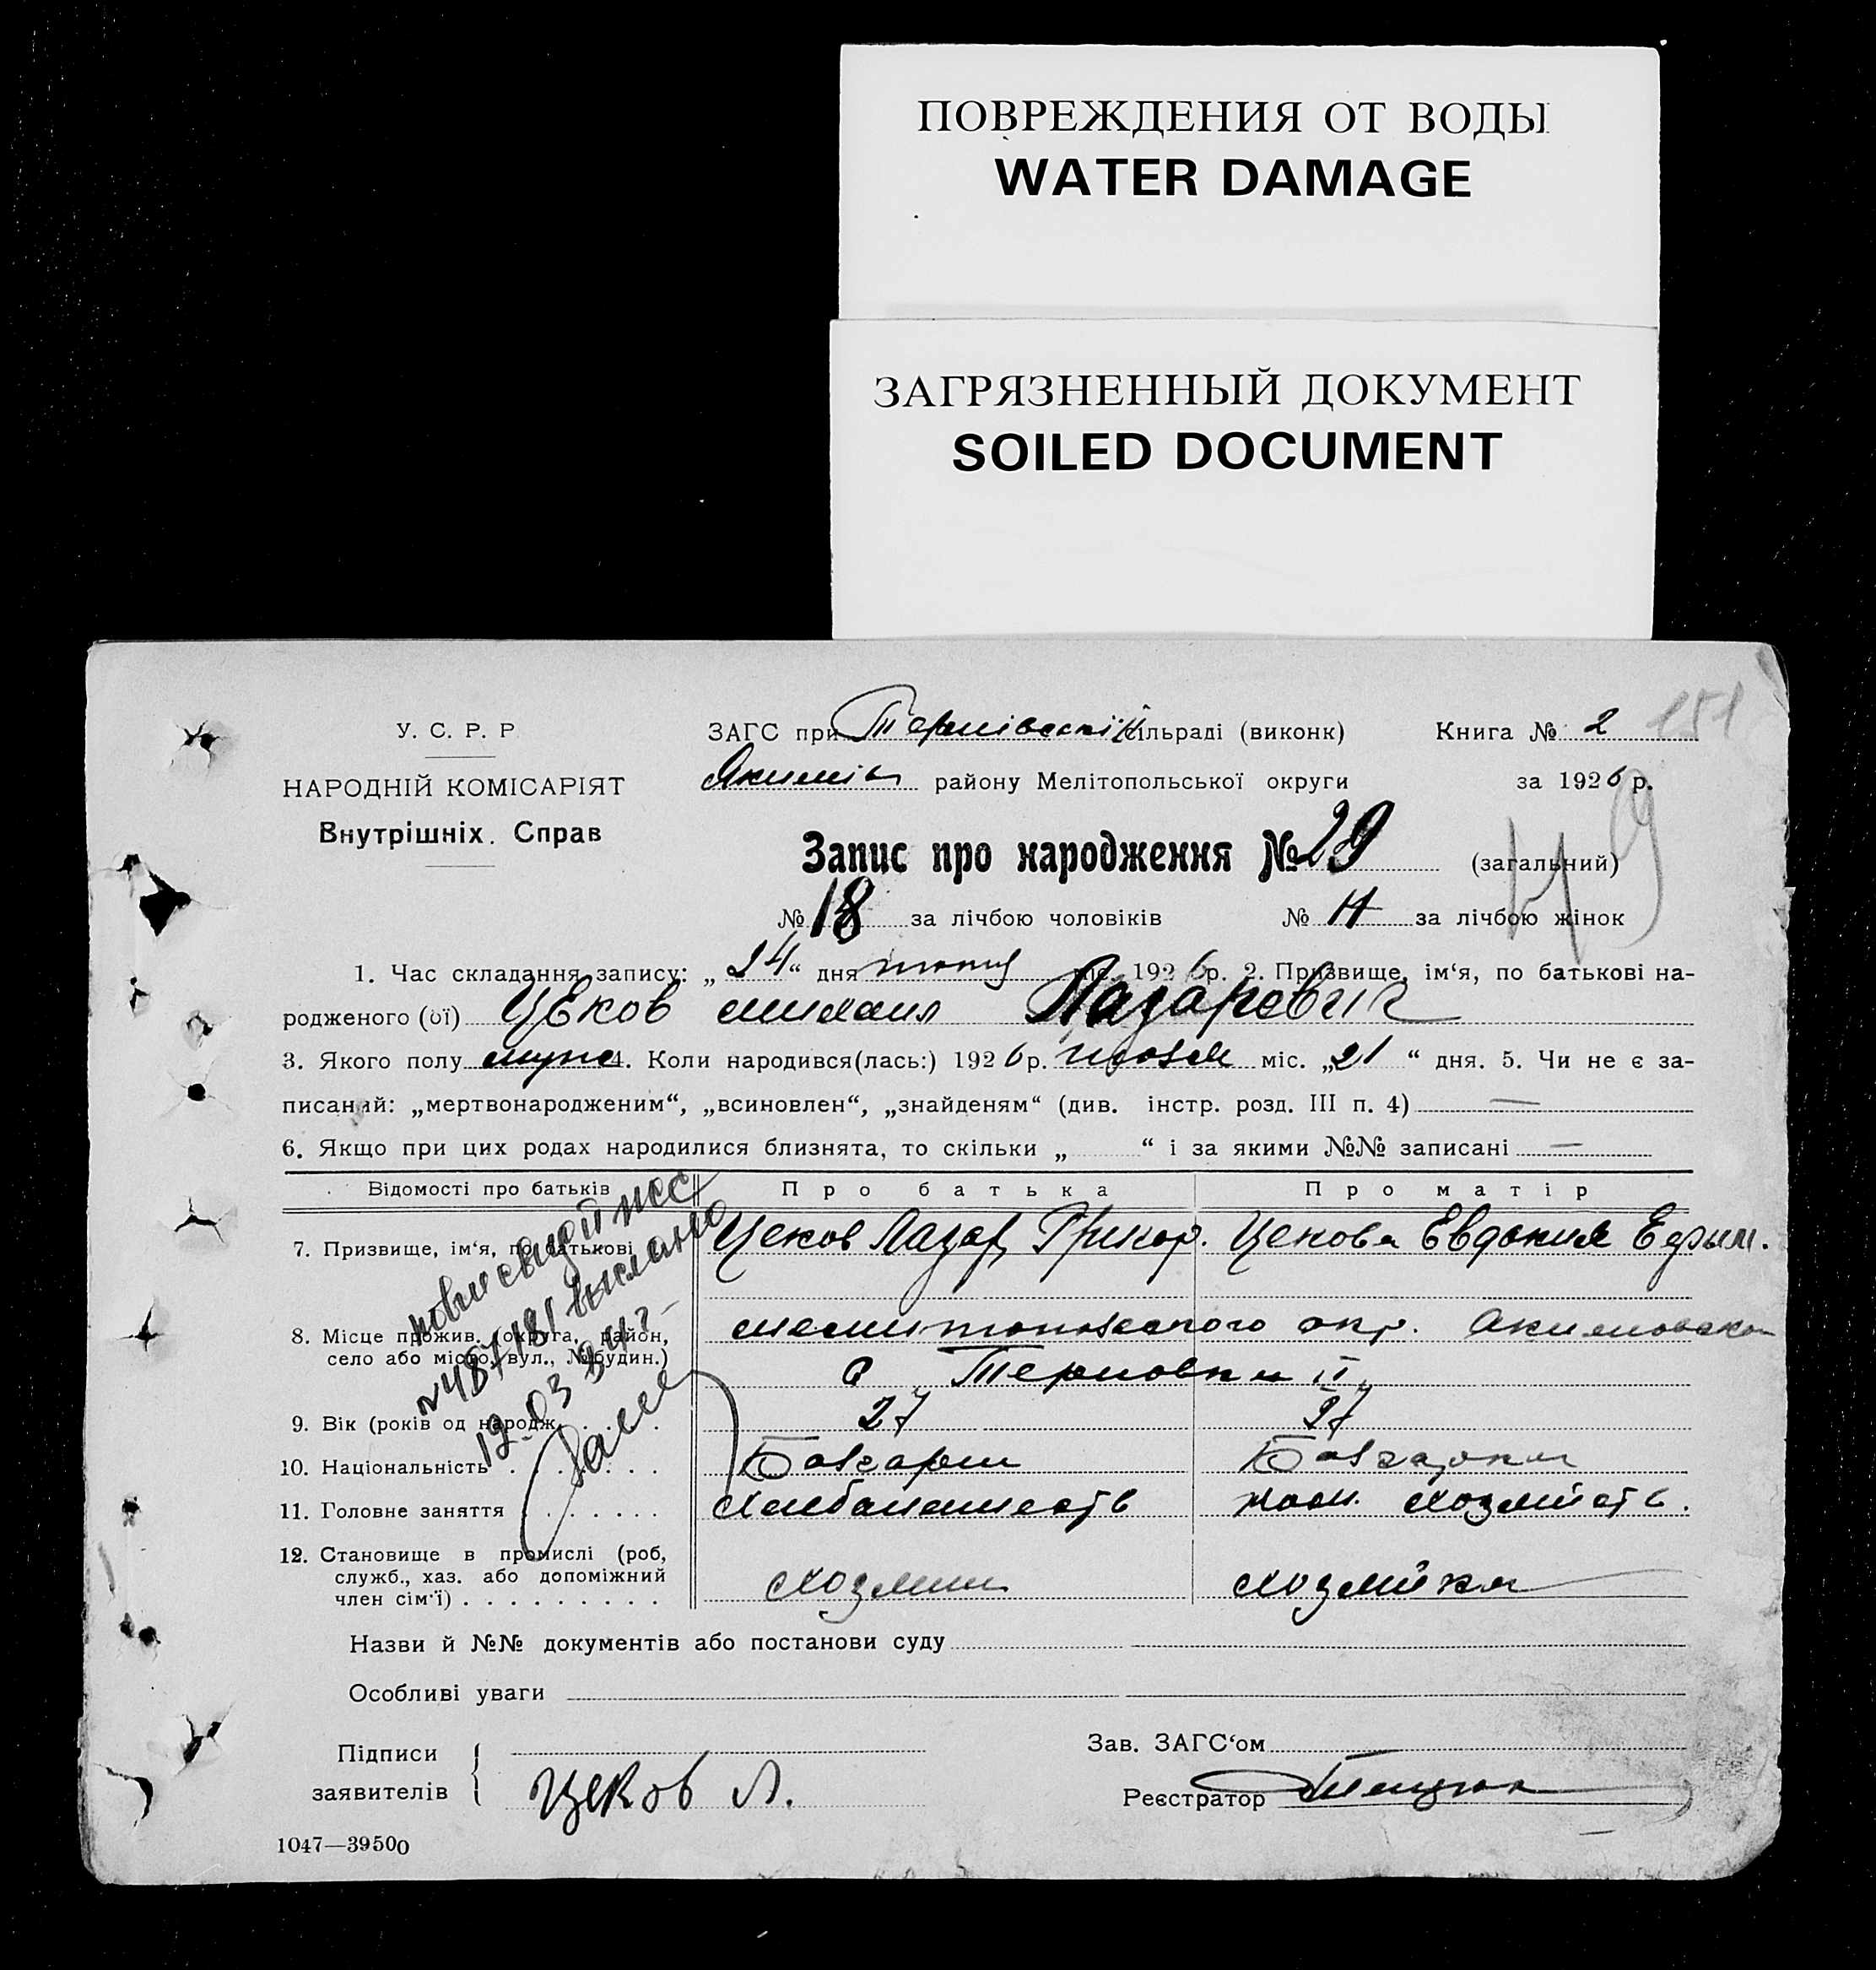 ПОВРЕЖДЕНИЯ ОТ ВОДЫ
WATER DAMAGE
ЗАГРЯЗНЕННЫЙ ДОКУМЕНТ
SOILED DOCUMENT
151
У. С. Р. Р
НАРОДНІЙ КОМІСАРІЯТ
Внутрішніх. Справ
ЗАГС при Тернівскій сільраді (виконк) Книга № 2
Якимів району Мелітопольської округи за 1926 р.
Запис про народження № 29 (загальний)
№ 18 за лічбою чоловіків № 11 за лічбою жінок
1. Час складання запису: „24“ дня міс. 1926 р. 2. Призвище, ім‘я, по батькові на-
родженого (ої) Цеков Михаил Лазаревич
3. Якого полу муж 4. Коли народився(лась:) 1926 р. июля міс. „21“ дня. 5. Чи не є за-
писаний: „мертвонародженим“, „всиновлен“, „знайденям“ (див. інстр. розд. III п. 4) —
6. Якщо при цих родах народилися близнята, то скільки „ “ і за якими №№ записані —
Відомості про батьків Про батька Про матір
7. Призвище, ім‘я, по батькові Цеков Лазар Григор. Цекова Евдокия Ефим.
8. Місце прожив. (округа, район, село або місто, вул., № будин.) Мелитопольского окр. Акимовско
с Терновка II
9. Вік (років од народж. . . . 27 27
10. Національність . . . . . . Болгарин Болгарка
11. Головне заняття . . . . . . . Хлебопашеств дом. хозяйств.
12. Становище в промислі (роб, служб., хаз. або допоміжний член сім‘ї) . . . . . . . . . Хозяин хозяйка
№ 487181 выслано
Назви й №№ документів або постанови суду
Особливі уваги
Підписи заявителів Цеков Л.
Зав. ЗАГС‘ом
Реєстратор
1047—39500